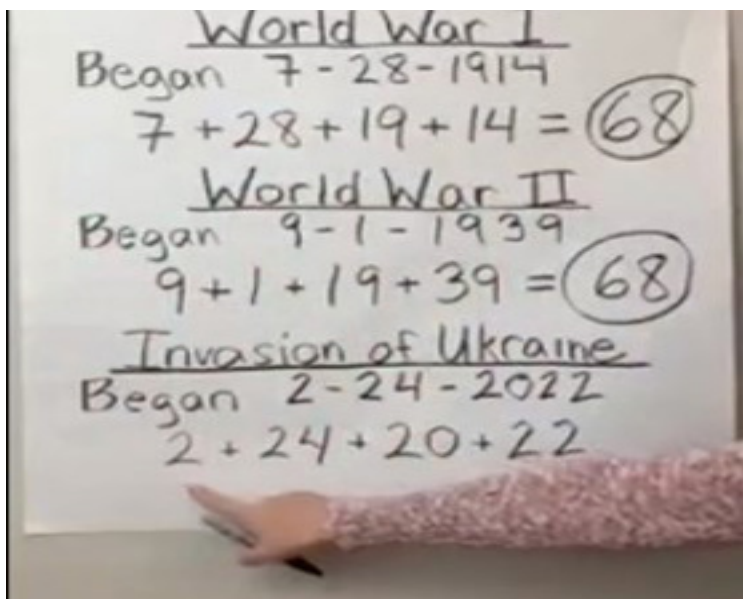 World War I
Began 7-28-1914
7+28+19+14=68
World War II
Began 9-1-1939
9+1+19+39=68
Invasion of Ukraine
Began 2-24-2022
2+24+20+22